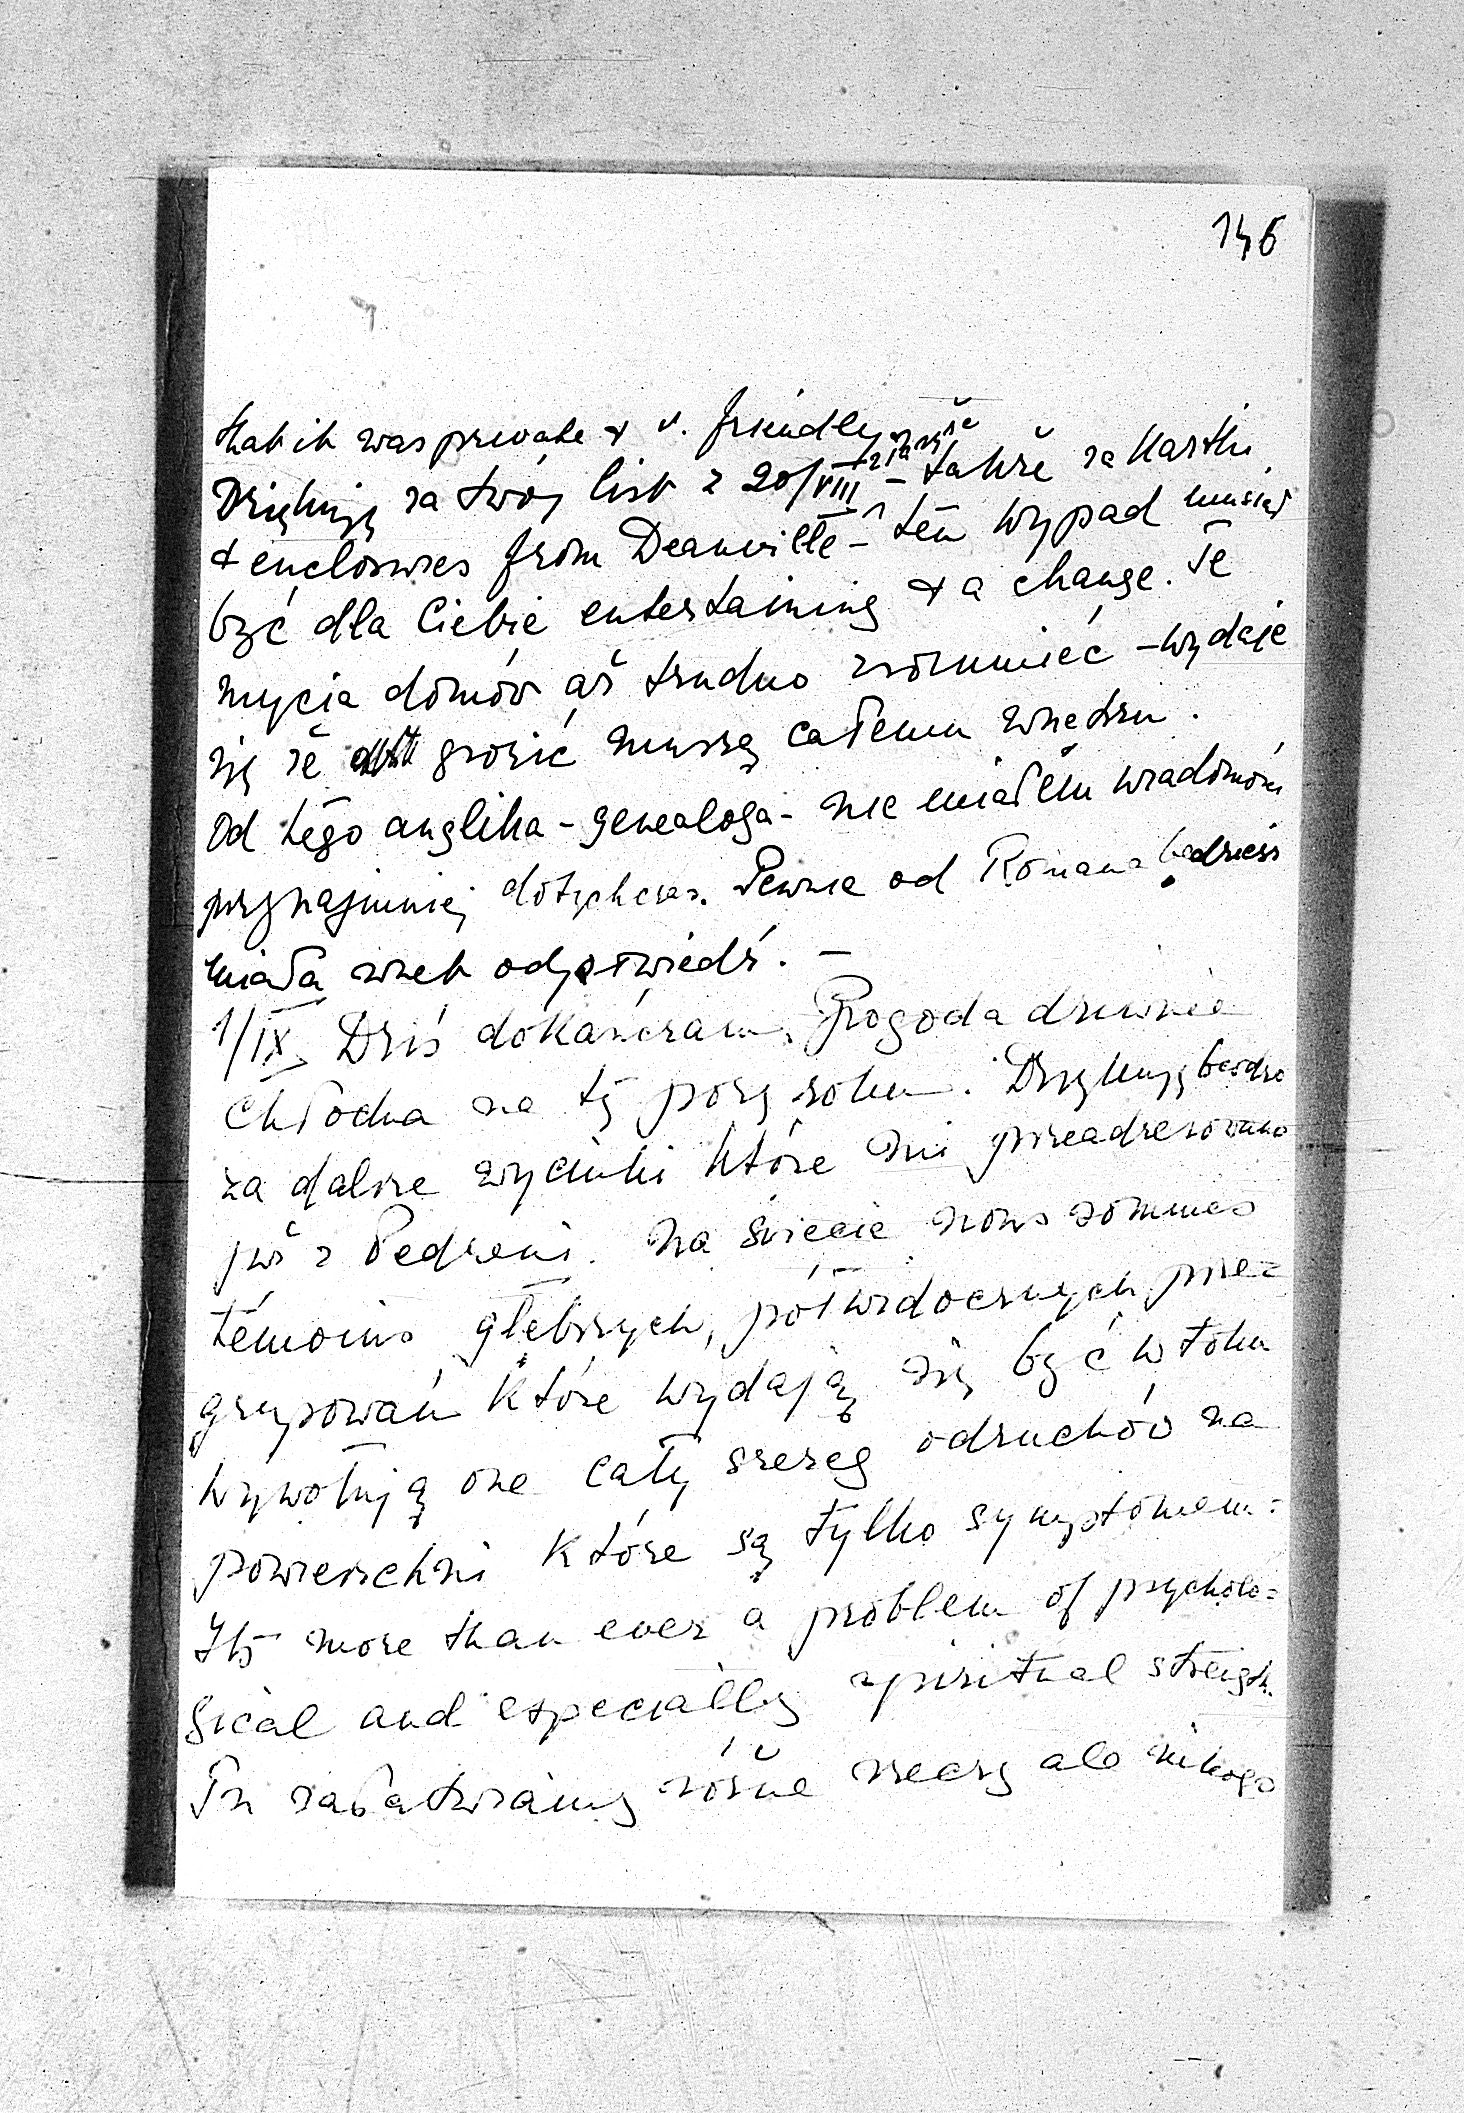 146
that it was private & v. friendly
Dziękuję za twój list z 20/VIII – także za kartki
& enclosures from Deauville – ten wypad musiał
być dla Ciebie entertaining & a change. Te
mycia domów aż trudno zrozumieć – wydaje
się że grozić muszą całemu wnętrzu.
Od tego anglika – genealoga – nie miałem wiadomości
przynajmniej dotychczas. Pewnie od Romana będziesz
miała wnet odpowiedź. –
1/IX. Dziś dokańczam. Pogoda dziwnie
chłodna na tę porę roku. Dziękuję bardzo
za dalsze wycinki które mi przeadresowano
już z Pedreni. Na świecie nous sommes
témoins głębszych, półwidocznych prze=
grupowań które wydają się być w toku
wywołują one cały szereg odruchów na
powierzchni które są tylko symptomem:
It's more than ever a problem of psycholo=
gical and especially spiritual strength.
Tu załatwiamy różne rzeczy ale nikogo